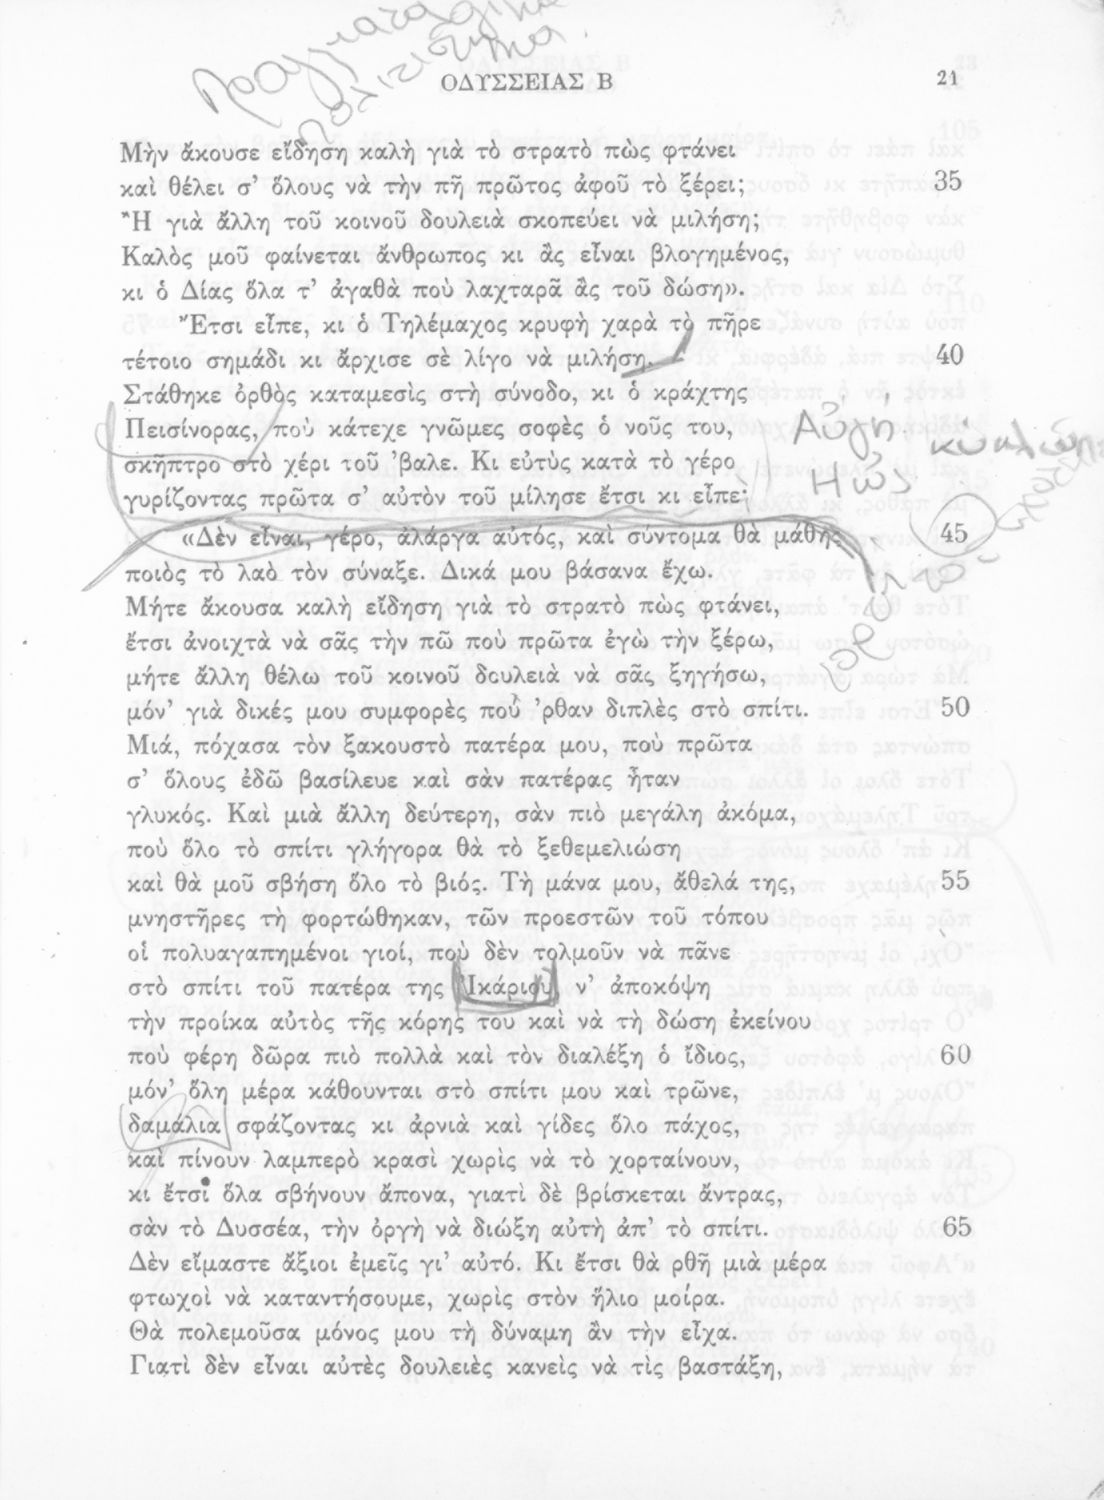 πραγματολογικά
ΟΔΥΣΣΕΙΑΣ Β 21
Μὴν ἄκουσε εἴδηση καλὴ γιὰ τὸ στρατὸ πὼς φτάνει
καὶ θέλει σ' ὅλους νὰ τὴν πῆ πρῶτος ἀφοῦ τὸ ξέρει; 35
Ἢ γιὰ ἄλλη τοῦ κοινοῦ δουλειὰ σκοπεύει νὰ μιλήση;
Καλὸς μοῦ φαίνεται ἄνθρωπος κι ἂς εἶναι βλογημένος,
κι ὁ Δίας ὅλα τ' ἀγαθὰ ποὺ λαχταρᾶ ἂς τοῦ δώση».
Ἔτσι εἶπε, κι ὁ Τηλέμαχος κρυφὴ χαρὰ τὸ πῆρε
τέτοιο σημάδι κι ἄρχισε σὲ λίγο νὰ μιλήση. 40
Στάθηκε ὀρθὸς καταμεσὶς στὴ σύνοδο, κι ὁ κράχτης
Πεισίνορας, ποὺ κάτεχε γνῶμες σοφὲς ὁ νοῦς του,
Αὐγή
σκῆπτρο στὸ χέρι τοῦ 'βαλε. Κι εὐτὺς κατὰ τὸ γέρο
Ηώς
γυρίζοντας πρῶτα σ' αὐτὸν τοῦ μίλησε ἔτσι κι εἶπε:
«Δὲν εἶναι, γέρο, ἀλάργα αὐτός, καὶ σύντομα θὰ μάθης 45
ποιὸς τὸ λαὸ τὸν σύναξε. Δικά μου βάσανα ἔχω.
Μήτε ἄκουσα καλὴ εἴδηση γιὰ τὸ στρατὸ πὼς φτάνει,
ἔτσι ἀνοιχτὰ νὰ σᾶς τὴν πῶ ποὺ πρῶτα ἐγὼ τὴν ξέρω,
μήτε ἄλλη θέλω τοῦ κοινοῦ δουλειὰ νὰ σᾶς ξηγήσω,
μόν' γιὰ δικές μου συμφορὲς ποὺ 'ρθαν διπλὲς στὸ σπίτι. 50
Μιά, πόχασα τὸν ξακουστὸ πατέρα μου, ποὺ πρῶτα
σ' ὅλους ἐδῶ βασίλευε καὶ σὰν πατέρας ἦταν
γλυκός. Καὶ μιὰ ἄλλη δεύτερη, σὰν πιὸ μεγάλη ἀκόμα,
ποὺ ὅλο τὸ σπίτι γλήγορα θὰ τὸ ξεθεμελιώση
καὶ θὰ μοῦ σβήση ὅλο τὸ βιός. Τὴ μάνα μου, ἄθελά της, 55
μνηστῆρες τὴ φορτώθηκαν, τῶν προεστῶν τοῦ τόπου
οἱ πολυαγαπημένοι γιοί, ποὺ δὲν τολμοῦν νὰ πᾶνε
στὸ σπίτι τοῦ πατέρα της Ἰκάριου ν' ἀποκόψη
τὴν προίκα αὐτὸς τῆς κόρης του καὶ νὰ τὴ δώση ἐκείνου
ποὺ φέρη δῶρα πιὸ πολλὰ καὶ τὸν διαλέξη ὁ ἴδιος, 60
μόν' ὅλη μέρα κάθουνται στὸ σπίτι μου καὶ τρῶνε,
δαμάλια σφάζοντας κι ἀρνιὰ καὶ γίδες ὅλο πάχος,
καὶ πίνουν λαμπερὸ κρασὶ χωρὶς νὰ τὸ χορταίνουν,
κι ἔτσι ὅλα σβήνουν ἄπονα, γιατὶ δὲ βρίσκεται ἄντρας,
σὰν τὸ Δυσσέα, τὴν ὀργὴ νὰ διώξη αὐτὴ ἀπ' τὸ σπίτι. 65
Δὲν εἴμαστε ἄξιοι ἐμεῖς γι' αὐτό. Κι ἔτσι θὰ ρθῆ μιὰ μέρα
φτωχοὶ νὰ καταντήσουμε, χωρὶς στὸν ἥλιο μοίρα.
Θὰ πολεμοῦσα μόνος μου τὴ δύναμη ἂν τὴν εἶχα.
Γιατὶ δὲν εἶναι αὐτὲς δουλειὲς κανεὶς νὰ τὶς βαστάξη,